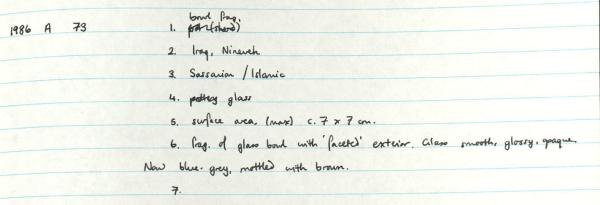 bowl frag.
1986 A 73 1. pot (sherd)
2. Iraq, Nineveh
3. Sassanian / Islamic
4. pottery glass
5. surface area (max) c. 7 x 7 cm.
6. frag. of glass bowl with 'faceted' exterior. Glass smooth, glossy, opaque.
Now blue-grey, mottled with brown.
7.